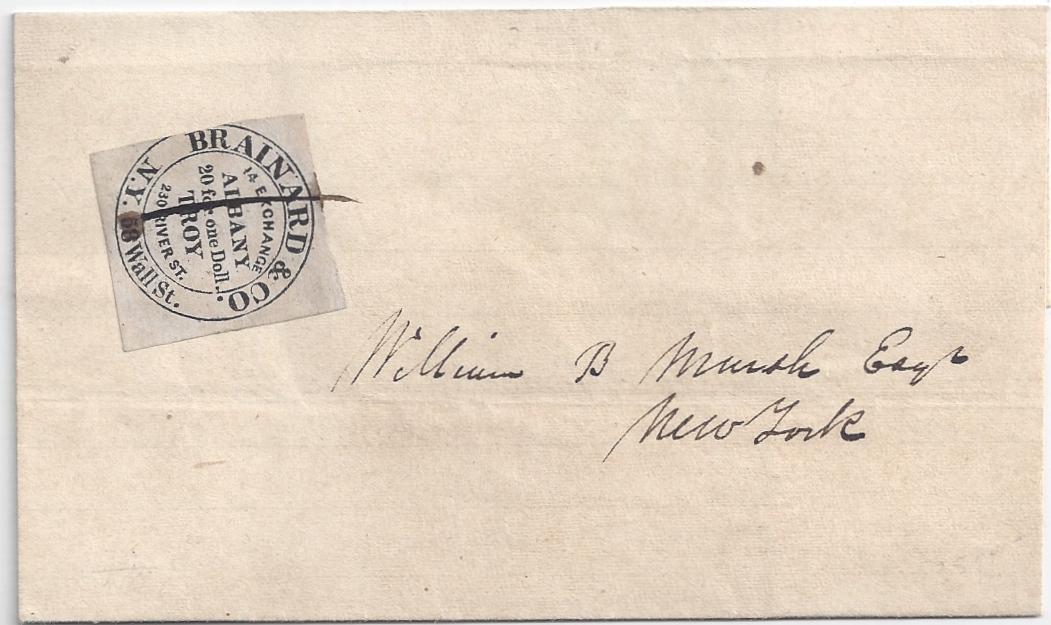 BRAINARD & CO.
N.Y. 58 Wall St.
14 EXCHANGE
ALBANY
20 for one Doll.
TROY
230 RIVER ST.
William B Marsh Esqr
New York